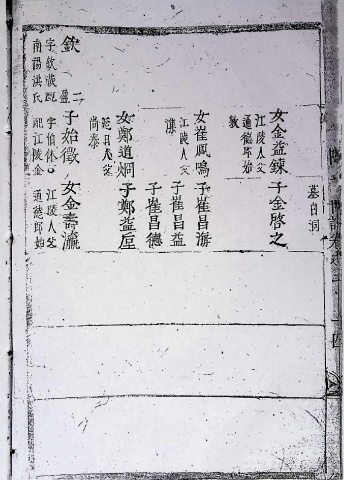 墓白洞
女金益鍊 子金啓之
江陵人父
通德郎始
敎
女崔鳳鳴 子崔昌海
江陵人父 子崔昌益
子崔昌德
女鄭道炯 子鄭益垕
延日人父
尚泰
欽 二子始徵 女金壽瀛
盈
字欽哉配 字伯休 江陵人父
南陽洪氏 配江陵金 通德郎始